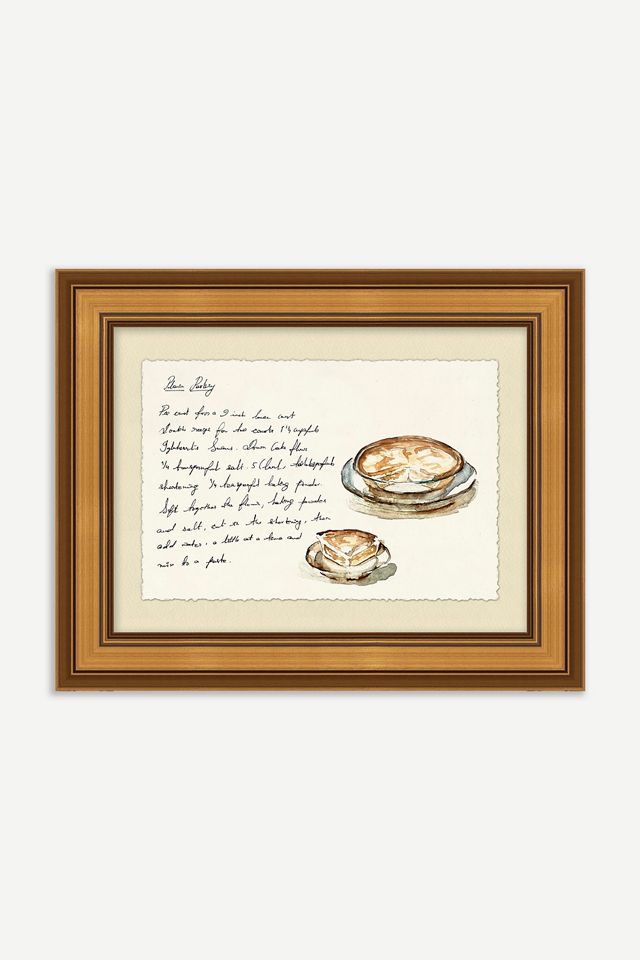 Plain Pastry
Pie crust for a 9 inch lower crust
double recipe for two crusts 1 1/4 cupfuls
Igleheart's Swans Down Cake flour
1/4 teaspoonful salt. 5 (level) tablespoonfuls
shortening 1/4 teaspoonful baking powder.
Sift together the flour, baking powder
and salt, cut in the shortening, then
add water, a little at a time and
mix to a paste.